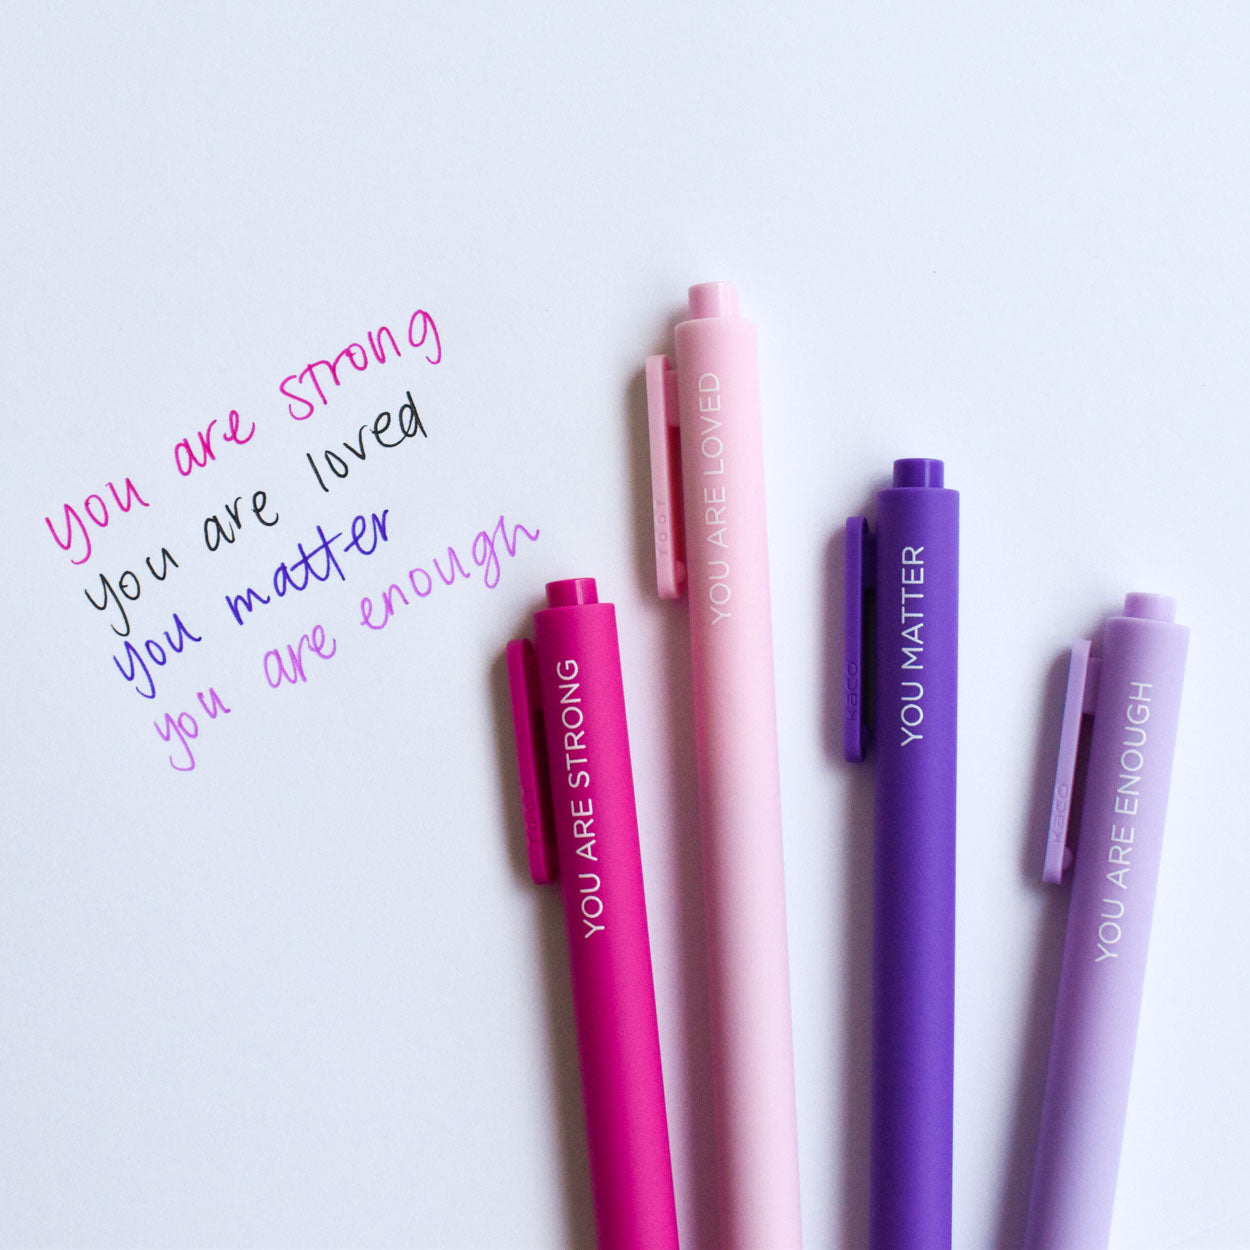 you are strong
you are loved
you matter
you are enough
YOU ARE STRONG
YOU ARE LOVED
TOOT
YOU MATTER
KACO
YOU ARE ENOUGH
KACO